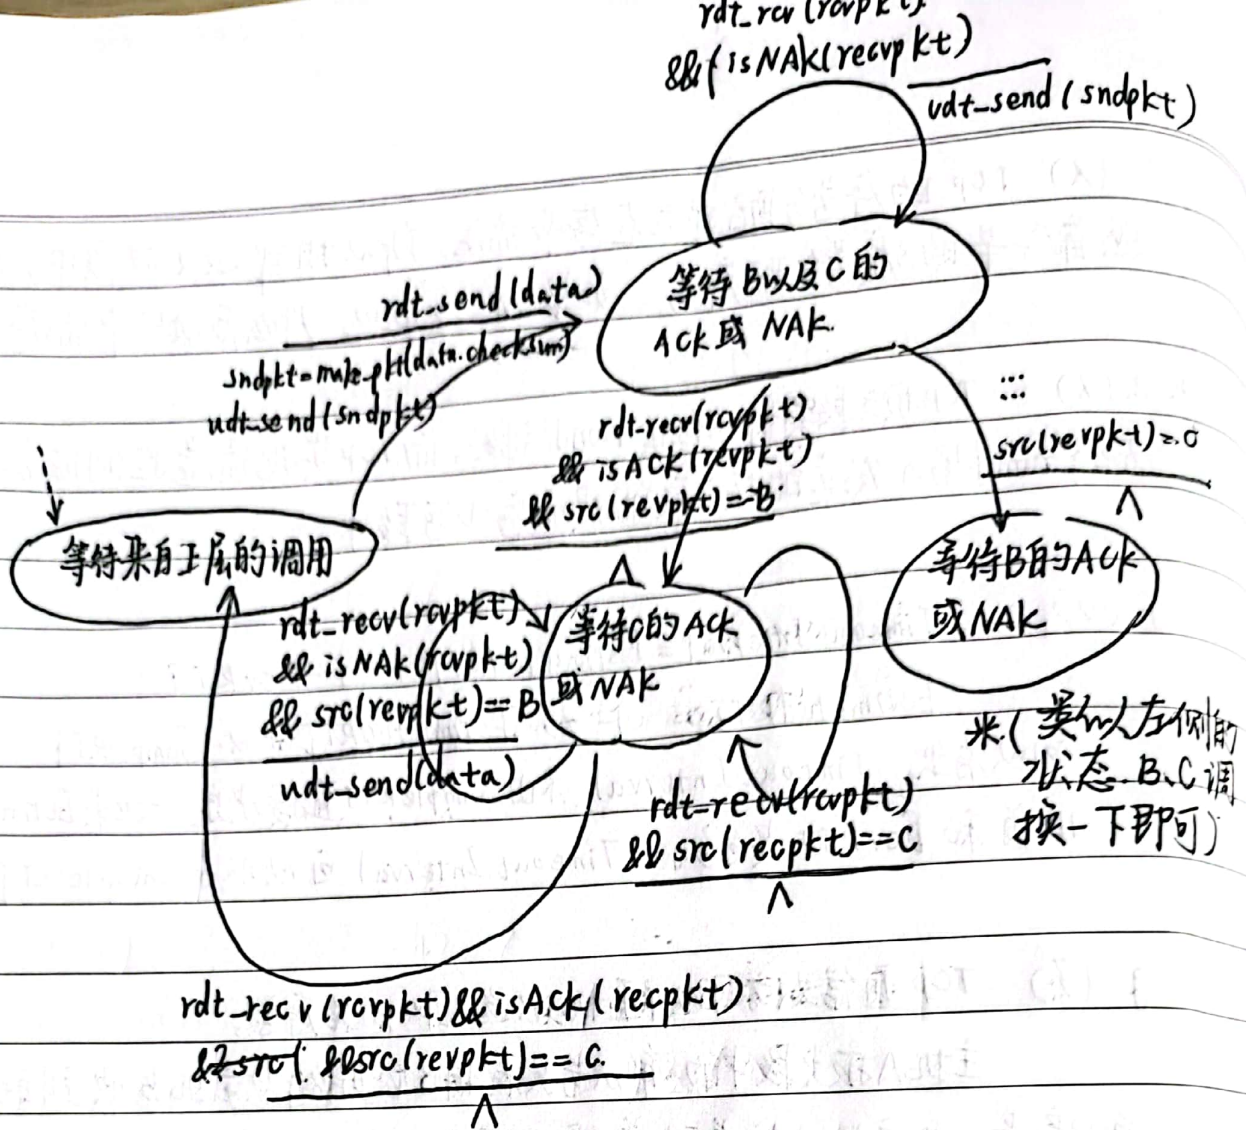 rdt_rcv(rcvpkt)
&&( isNAK(recvpkt)
udt_send(sndpkt)
等待B以及C的
ACK或 NAK.
rdt_send(data)
sndpkt=make_pkt(data.checksum)
udt_send(sndpkt)
rdt_recv(rcvpkt)
&& isACK(revpkt)
&& src(revpkt)==B
Λ
:::
src(revpkt)=.c
Λ
等待来自上层的调用
等待B的ACK
或NAK
rdt_recv(rcvpkt)
&& isNAK(rcvpkt)
&& src(revpkt)==B
udt_send(data)
等待C的ACK
或NAK
米.( 类似左侧的
状态.B.C调
换一下即可)
rdt_recv(rcvpkt)
&& src(recpkt)==C
Λ
rdt_recv(rcvpkt)&&isAck(recpkt)
&&src( &&src(revpkt)==C.
Λ